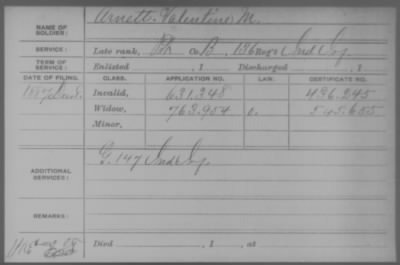 NAME OF SOLDIER: Arnett, Valentine M.
SERVICE: Late rank, Co. B, 136 Reg't Ind Inf
TERM OF SERVICE: Enlisted , 1 Discharged , 1
DATE OF FILING. CLASS. APPLICATION NO. LAW. CERTIFICATE NO.
Invalid, 631.348 496.245
Widow, 763.954 545.655
Minor,
ADDITIONAL SERVICES: G. 147 Ind Inf
REMARKS:
Died , 1 , at